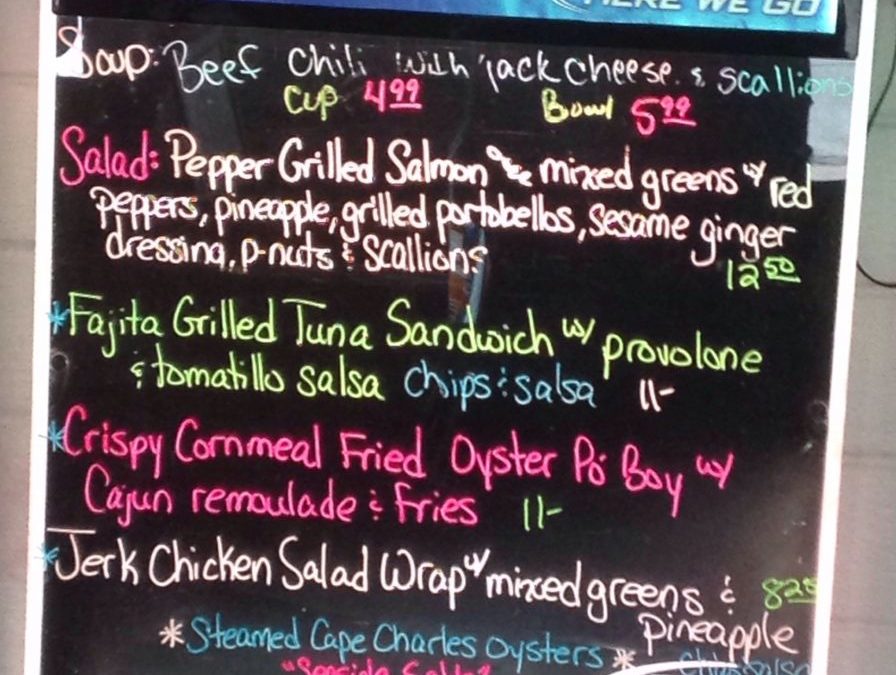 HERE WE GO
Soup: Beef Chili with jack cheese & scallions
Cup 4.99 Bowl 5.99
Salad: Pepper Grilled Salmon mixed greens w/ red
peppers, pineapple, grilled portobellos, sesame ginger
dressing, p-nuts & scallions
12 50
*Fajita Grilled Tuna Sandwich w/ provolone
& tomatillo salsa chips & salsa 11-
*Crispy Cornmeal Fried Oyster Po' Boy w/
Cajun remoulade & Fries 11-
*Jerk Chicken Salad Wrap w/ mixed greens & 8 25
pineapple
*Steamed Cape Charles Oysters*